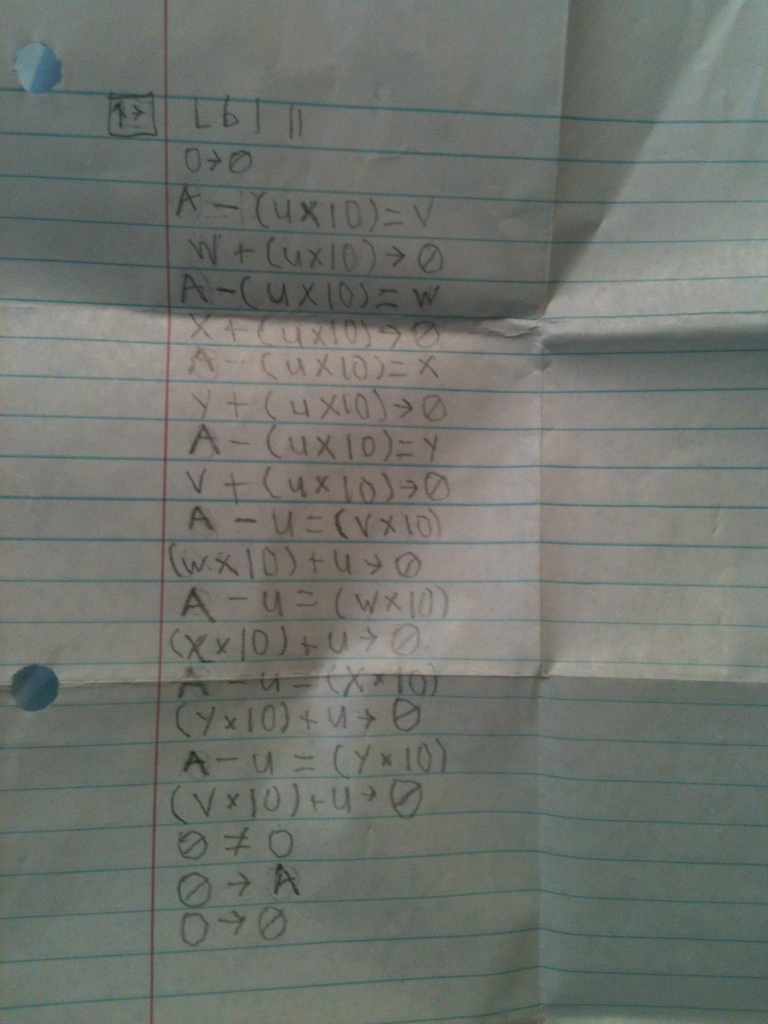 ↑→ Lbl 11
0→Ø
A-(U×10)=V
W+(U×10)→Ø
A-(U×10)=W
X+(U×10)→Ø
A-(U×10)=X
Y+(U×10)→Ø
A-(U×10)=Y
V+(U×10)→Ø
A-U=(V×10)
(W×10)+U→Ø
A-U=(W×10)
(X×10)+U→Ø
A-U=(X×10)
(Y×10)+U→Ø
A-U=(Y×10)
(V×10)+U→Ø
Ø≠0
Ø→A
0→Ø